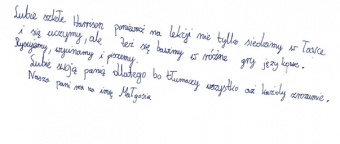 Lubię szkołę Harrison ponieważ na lekcji nie tylko siedzimy w ławce
i się uczymy, ale też się bawimy w różne gry językowe.
Rysujemy, wycinamy i piszemy.
Lubię swoją panią dlatego bo tłumaczy wszystko aż każdy zrozumie.
Nasza pani ma na imię Małgosia